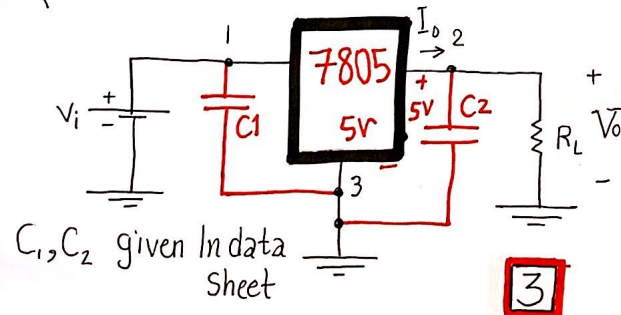 I₀
1
→ 2
7805
+
+
+
5V
C2
Vi
-
C1
5V
RL
V₀
-
-
3
C₁,C₂ given In data
Sheet
3